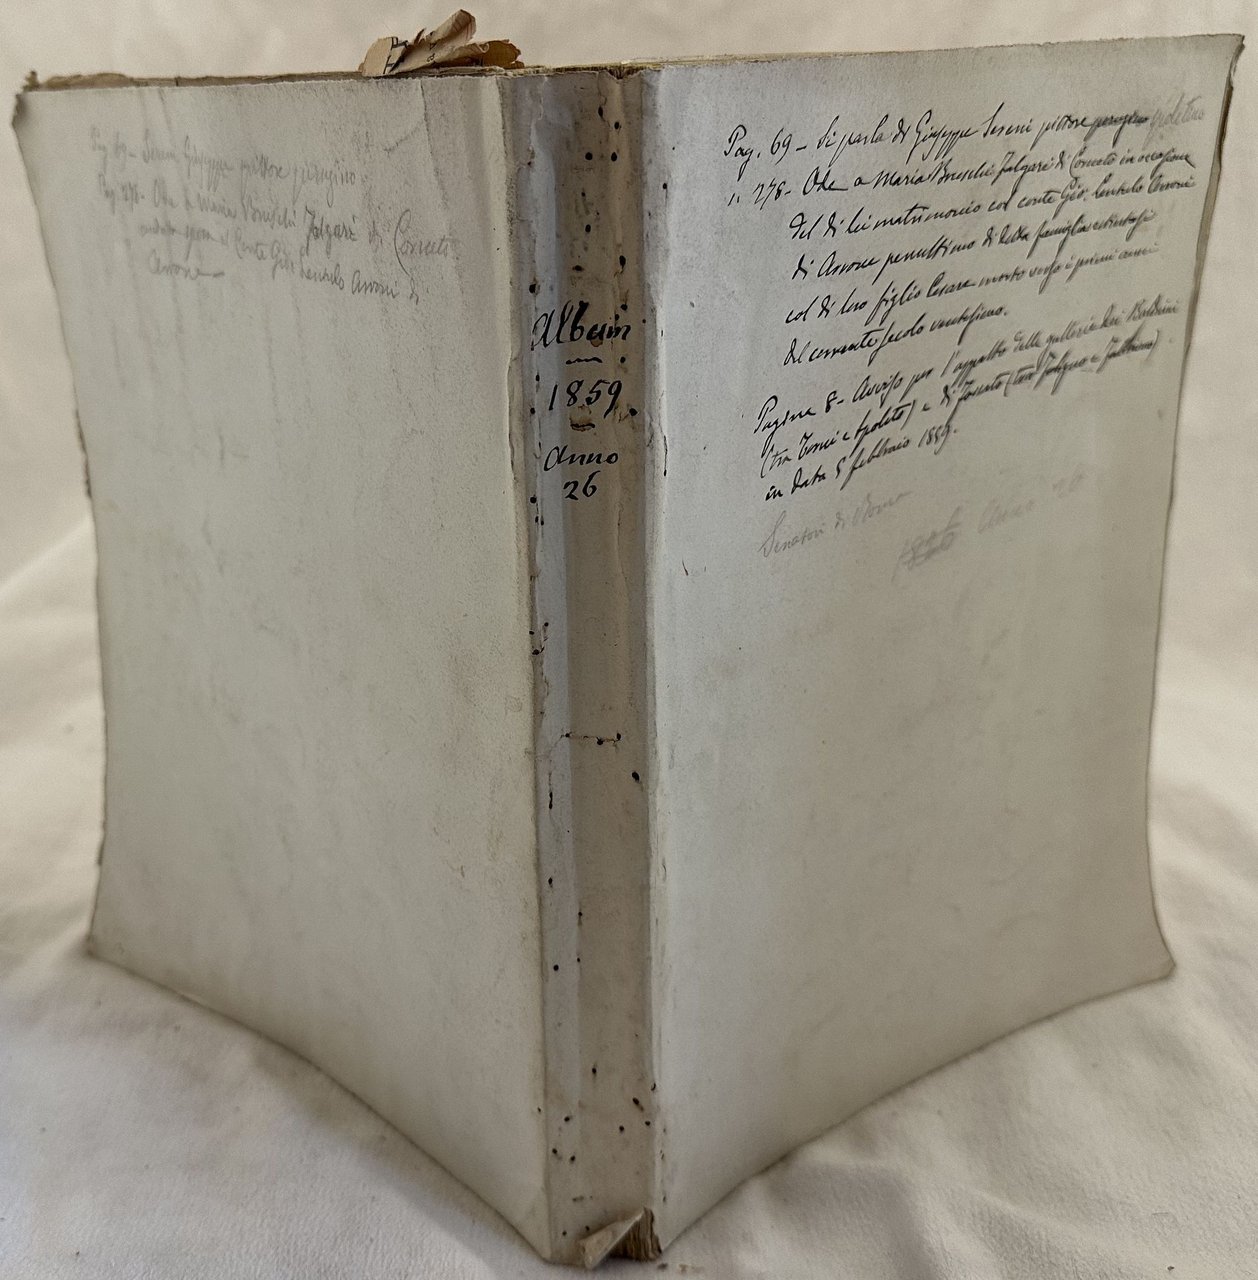 Pag. 69 - Sereni Giuseppe pittore perugino
Pag. 278. Ode a Maria Bruschi Falgari di Corneto
andata sposa al Conte Gio: Lentulo Arroni di
Arrone
Album
1859
Anno
26
Pag. 69 - Si parla di Giuseppe Sereni pittore perugino spoletino
" 278 - Ode a Maria Bruschi Falgari di Corneto in occasione
del di lei matrimonio col conte Gio: Lentulo Arroni
di Arrone penultimo di detta famiglia
col di loro figlio Cesare morto verso i primi anni
del corrente secolo ventesimo.
Pagina 8 - Avviso per l'appalto delle gallerie dei Balduini
(tra Terni e Spoleto) e di Fossato (tra Foligno e Fabriano)
in data 5 febbraio 1859.
Senatori di Roma
Anno 20